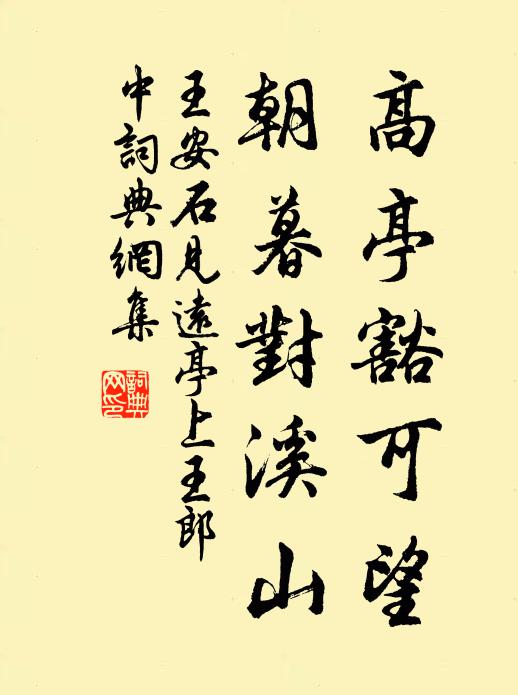 高亭豁可望
朝暮對溪山
王安石見遠亭上王郎
中詞典網集
詞典
网印